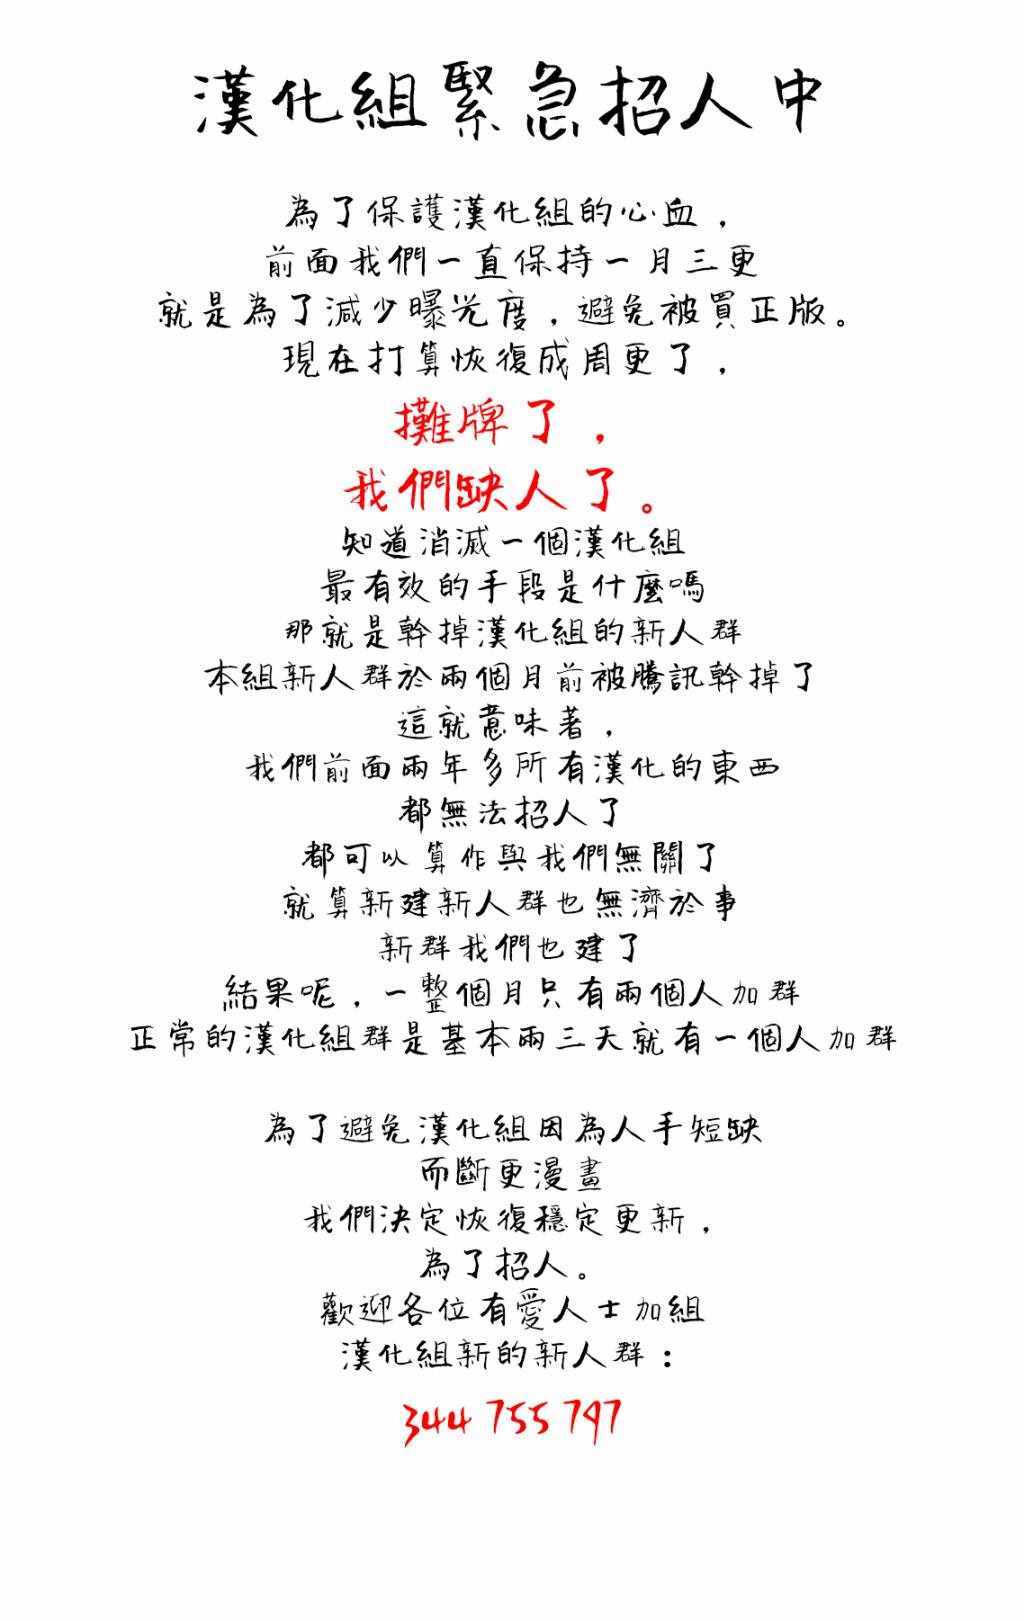 漢化組緊急招人中
為了保護漢化組的心血，
前面我們一直保持一月三更
就是為了減少曝光度，避免被買正版。
現在打算恢復成周更了，
攤牌了，
我們缺人了。
知道消滅一個漢化組
最有效的手段是什麼嗎
那就是幹掉漢化組的新人群
本組新人群於兩個月前被騰訊幹掉了
這就意味著，
我們前面兩年多所有漢化的東西
都無法招人了
都可以算作與我們無關了
就算新建新人群也無濟於事
新群我們也建了
結果呢，一整個月只有兩個人加群
正常的漢化組群是基本兩三天就有一個人加群
為了避免漢化組因為人手短缺
而斷更漫畫
我們決定恢復穩定更新，
為了招人。
歡迎各位有愛人士加組
漢化組新的新人群：
344 755 747